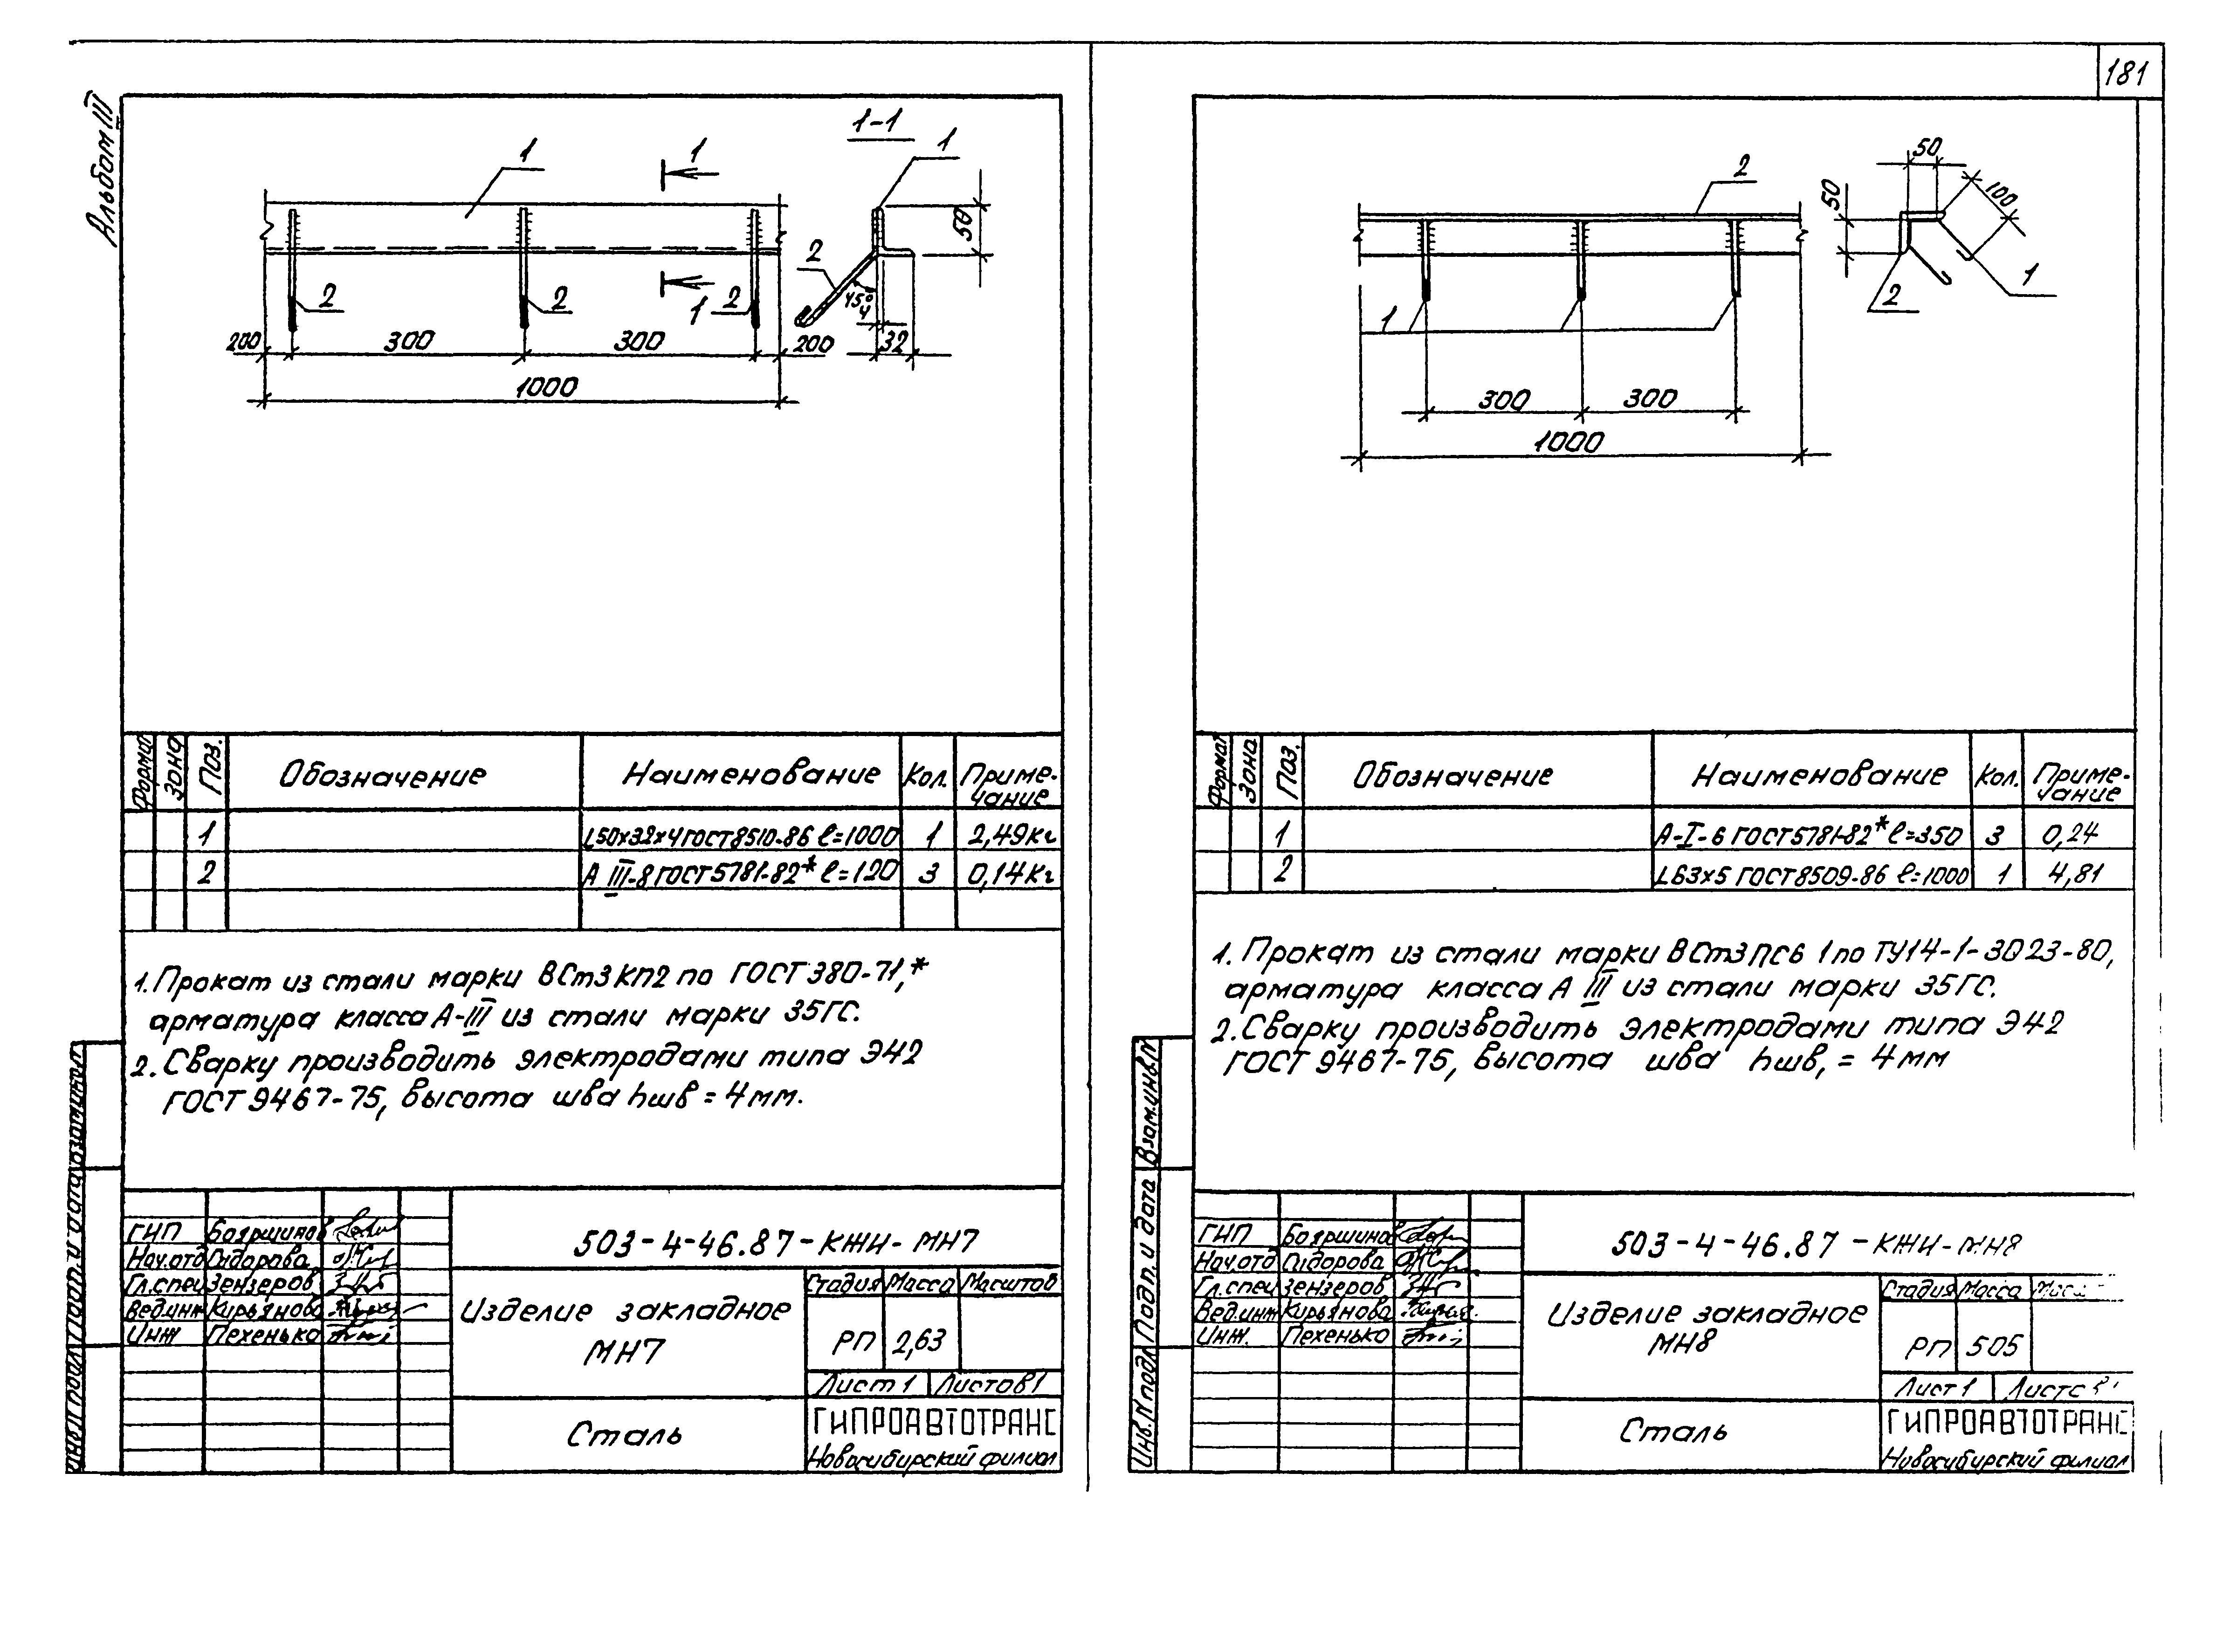 181
Альбом III
1-1
1
1
1
50
2
45°
4
2
2
1
2
200
300
300
200
32
1000
Формат
Зона
Поз.
Обозначение
Наименование
Кол.
Приме-
чание
1 L50х32х4 ГОСТ 8510-86 ℓ=1000 1 2,49кг
2 А III-8 ГОСТ 5781-82* ℓ=120 3 0,14кг
1. Прокат из стали марки ВСт3кп2 по ГОСТ 380-71,*
арматура класса А-III из стали марки 35ГС.
2. Сварку производить электродами типа Э42
ГОСТ 9467-75, высота шва hшв = 4мм.
ГИП Бояршинов
Нач.отд Сидорова
Гл.спец Зензеров
Вед.инж Кирьянова
Инж Пехенько
503-4-46.87-КЖИ-МН7
Изделие закладное
МН7
Стадия Масса Масштаб
РП 2,63
Лист 1 Листов 1
Сталь
ГИПРОАВТОТРАНС
Новосибирский филиал
2
50
50
100
1
2
1
300
300
1000
Формат
Зона
Поз.
Обозначение
Наименование
Кол.
Приме-
чание
1 А-I-6 ГОСТ 5781-82* ℓ=350 3 0,24
2 L63х5 ГОСТ 8509-86 ℓ=1000 1 4,81
1. Прокат из стали марки ВСт3пс6 1 по ТУ14-1-3023-80,
арматура класса А III из стали марки 35ГС.
2. Сварку производить электродами типа Э42
ГОСТ 9467-75, высота шва hшв, = 4мм
Взам.инв.N
Подп. и дата
Инв.N подл
ГИП Бояршинов
Нач.отд Сидорова
Гл.спец Зензеров
Вед.инж Кирьянова
Инж. Пехенько
503-4-46.87-КЖИ-МН8
Изделие закладное
МН8
Стадия Масса
РП 505
Лист 1
Сталь
ГИПРОАВТОТРАНС
Новосибирский филиал